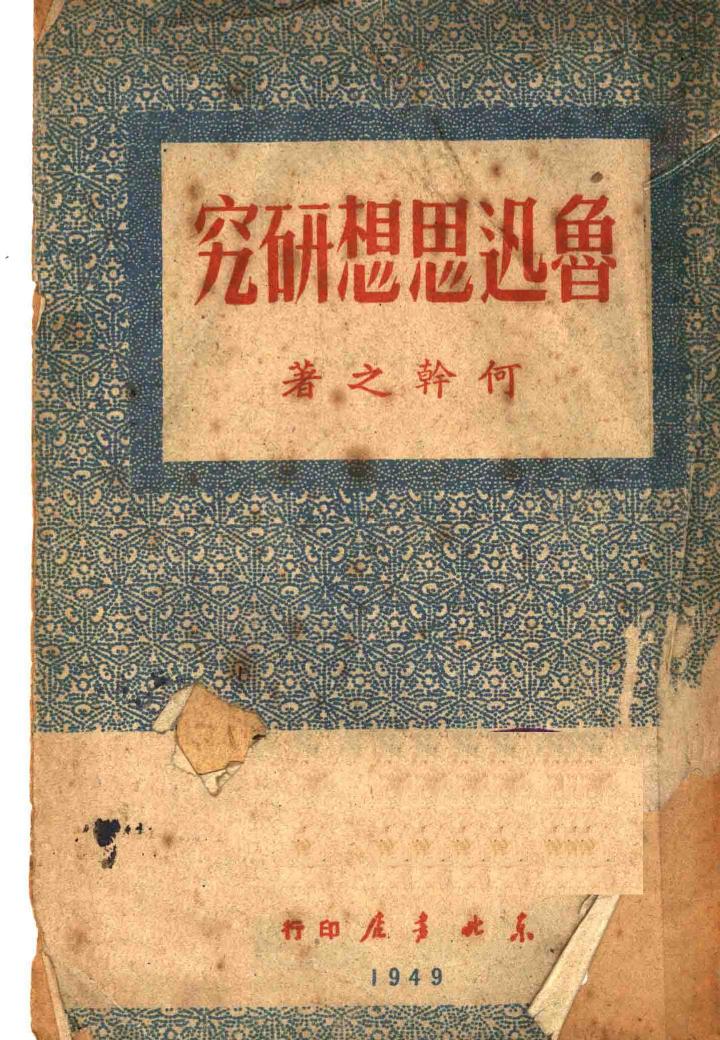 魯迅思想研究
何幹之著
东北书店印行
1949